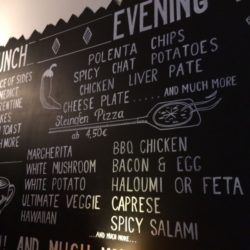 UNCH
EVENING
CE OF SIDES
NEDICT
RENTINE
KES
TOAST
MORE
POLENTA CHIPS
SPICY CHAT POTATOES
CHICKEN LIVER PATE
CHEESE PLATE ..... AND MUCH MORE
Steinofen Pizza
ab 4,50€
MARGHERITA
WHITE MUSHROOM
WHITE POTATO
ULTIMATE VEGGIE
HAWAIIAN
BBQ CHICKEN
BACON & EGG
HALOUMI OR FETA
CAPRESE
SPICY SALAMI
...AND MUCH MORE...
AND MUCH